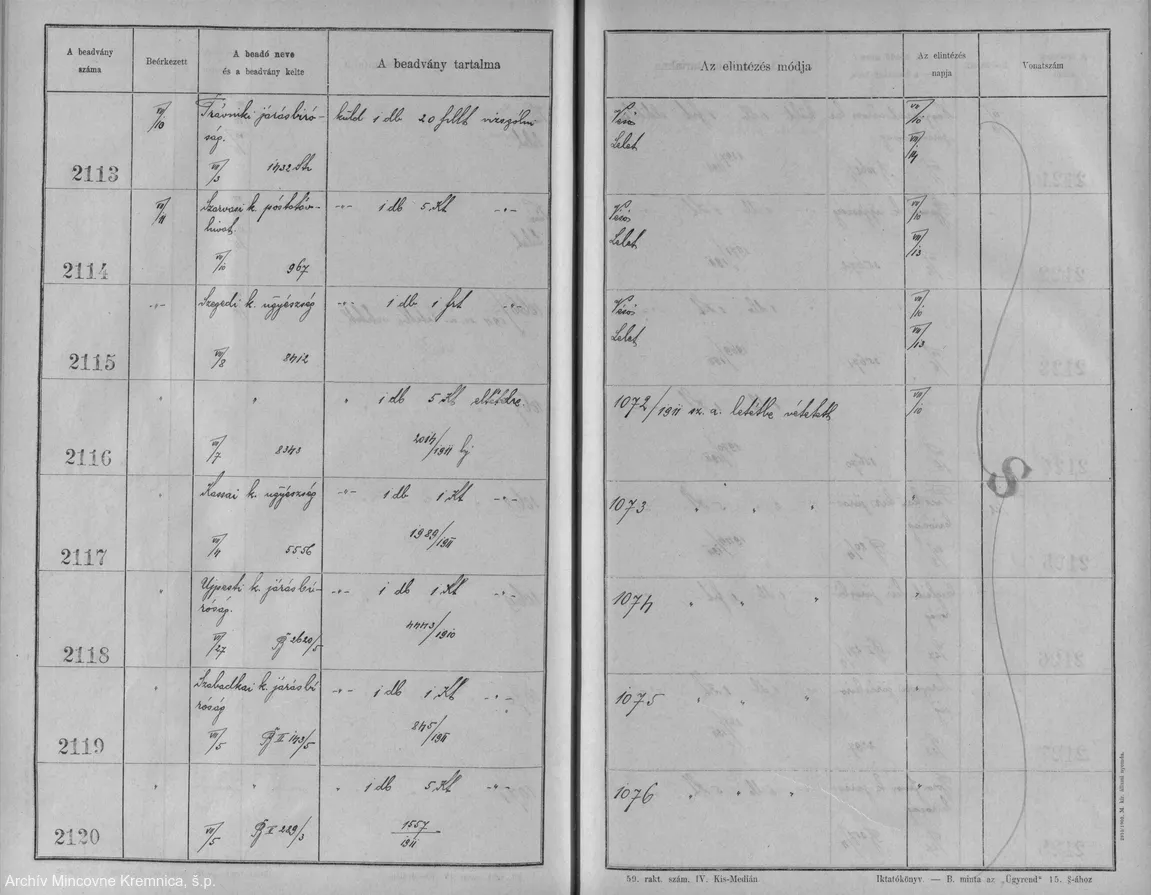 A beadvány
száma
Beérkezett
A beadó neve
és a beadvány kelte
A beadvány tartalma
Az elintézés módja
Az elintézés
napja
Vonatszám
2113
VII/10
Trávniki járásbiró-
ság.
VII/3 1432
küld 1 db 20 fillt vizsgálni
Véső
Lelet
VII/10
VII/14
2114
VII/11
Szarvasi k. póstatáv-
hivat.
VII/10 967
-"- 1 db 5 Kt -"-
Véső
Lelet
VII/10
VII/13
2115
-"-
Szegedi k. ügyészség
VII/8 8412
-"- 1 db 1 frt -"-
Véső
Lelet
VII/10
VII/13
2116
" "
VII/7 8343
" 1 db 5 Kt eltétdre.
2014/1911
1072/1911 sz. a. letétbe vétetett
VII/10
2117
"
Kassai k. ügyészség
VII/4 5556
-"- 1 db 1 Kt -"-
1989/1911
1073 " " " "
2118
"
Ujpesti k. járásbi-
róság.
VI/27 2620/5
-"- 1 db 1 Kt -"-
4443/1910
1074 " " " "
2119
"
Szabadkai k. járásbi
róság
VII/5 II 143/5
-"- 1 db 1 Kt -"-
845/1911
1075 " " " "
2120
" "
VII/5 229/3
" 1 db 5 Kt -"-
1557/1911
1076 " " " "
8
59. rakt. szám. IV. Kis-Medián
Iktatókönyv. — B. minta az „Ügyrend" 15. §-ához
Archív Mincovne Kremnica, š.p.